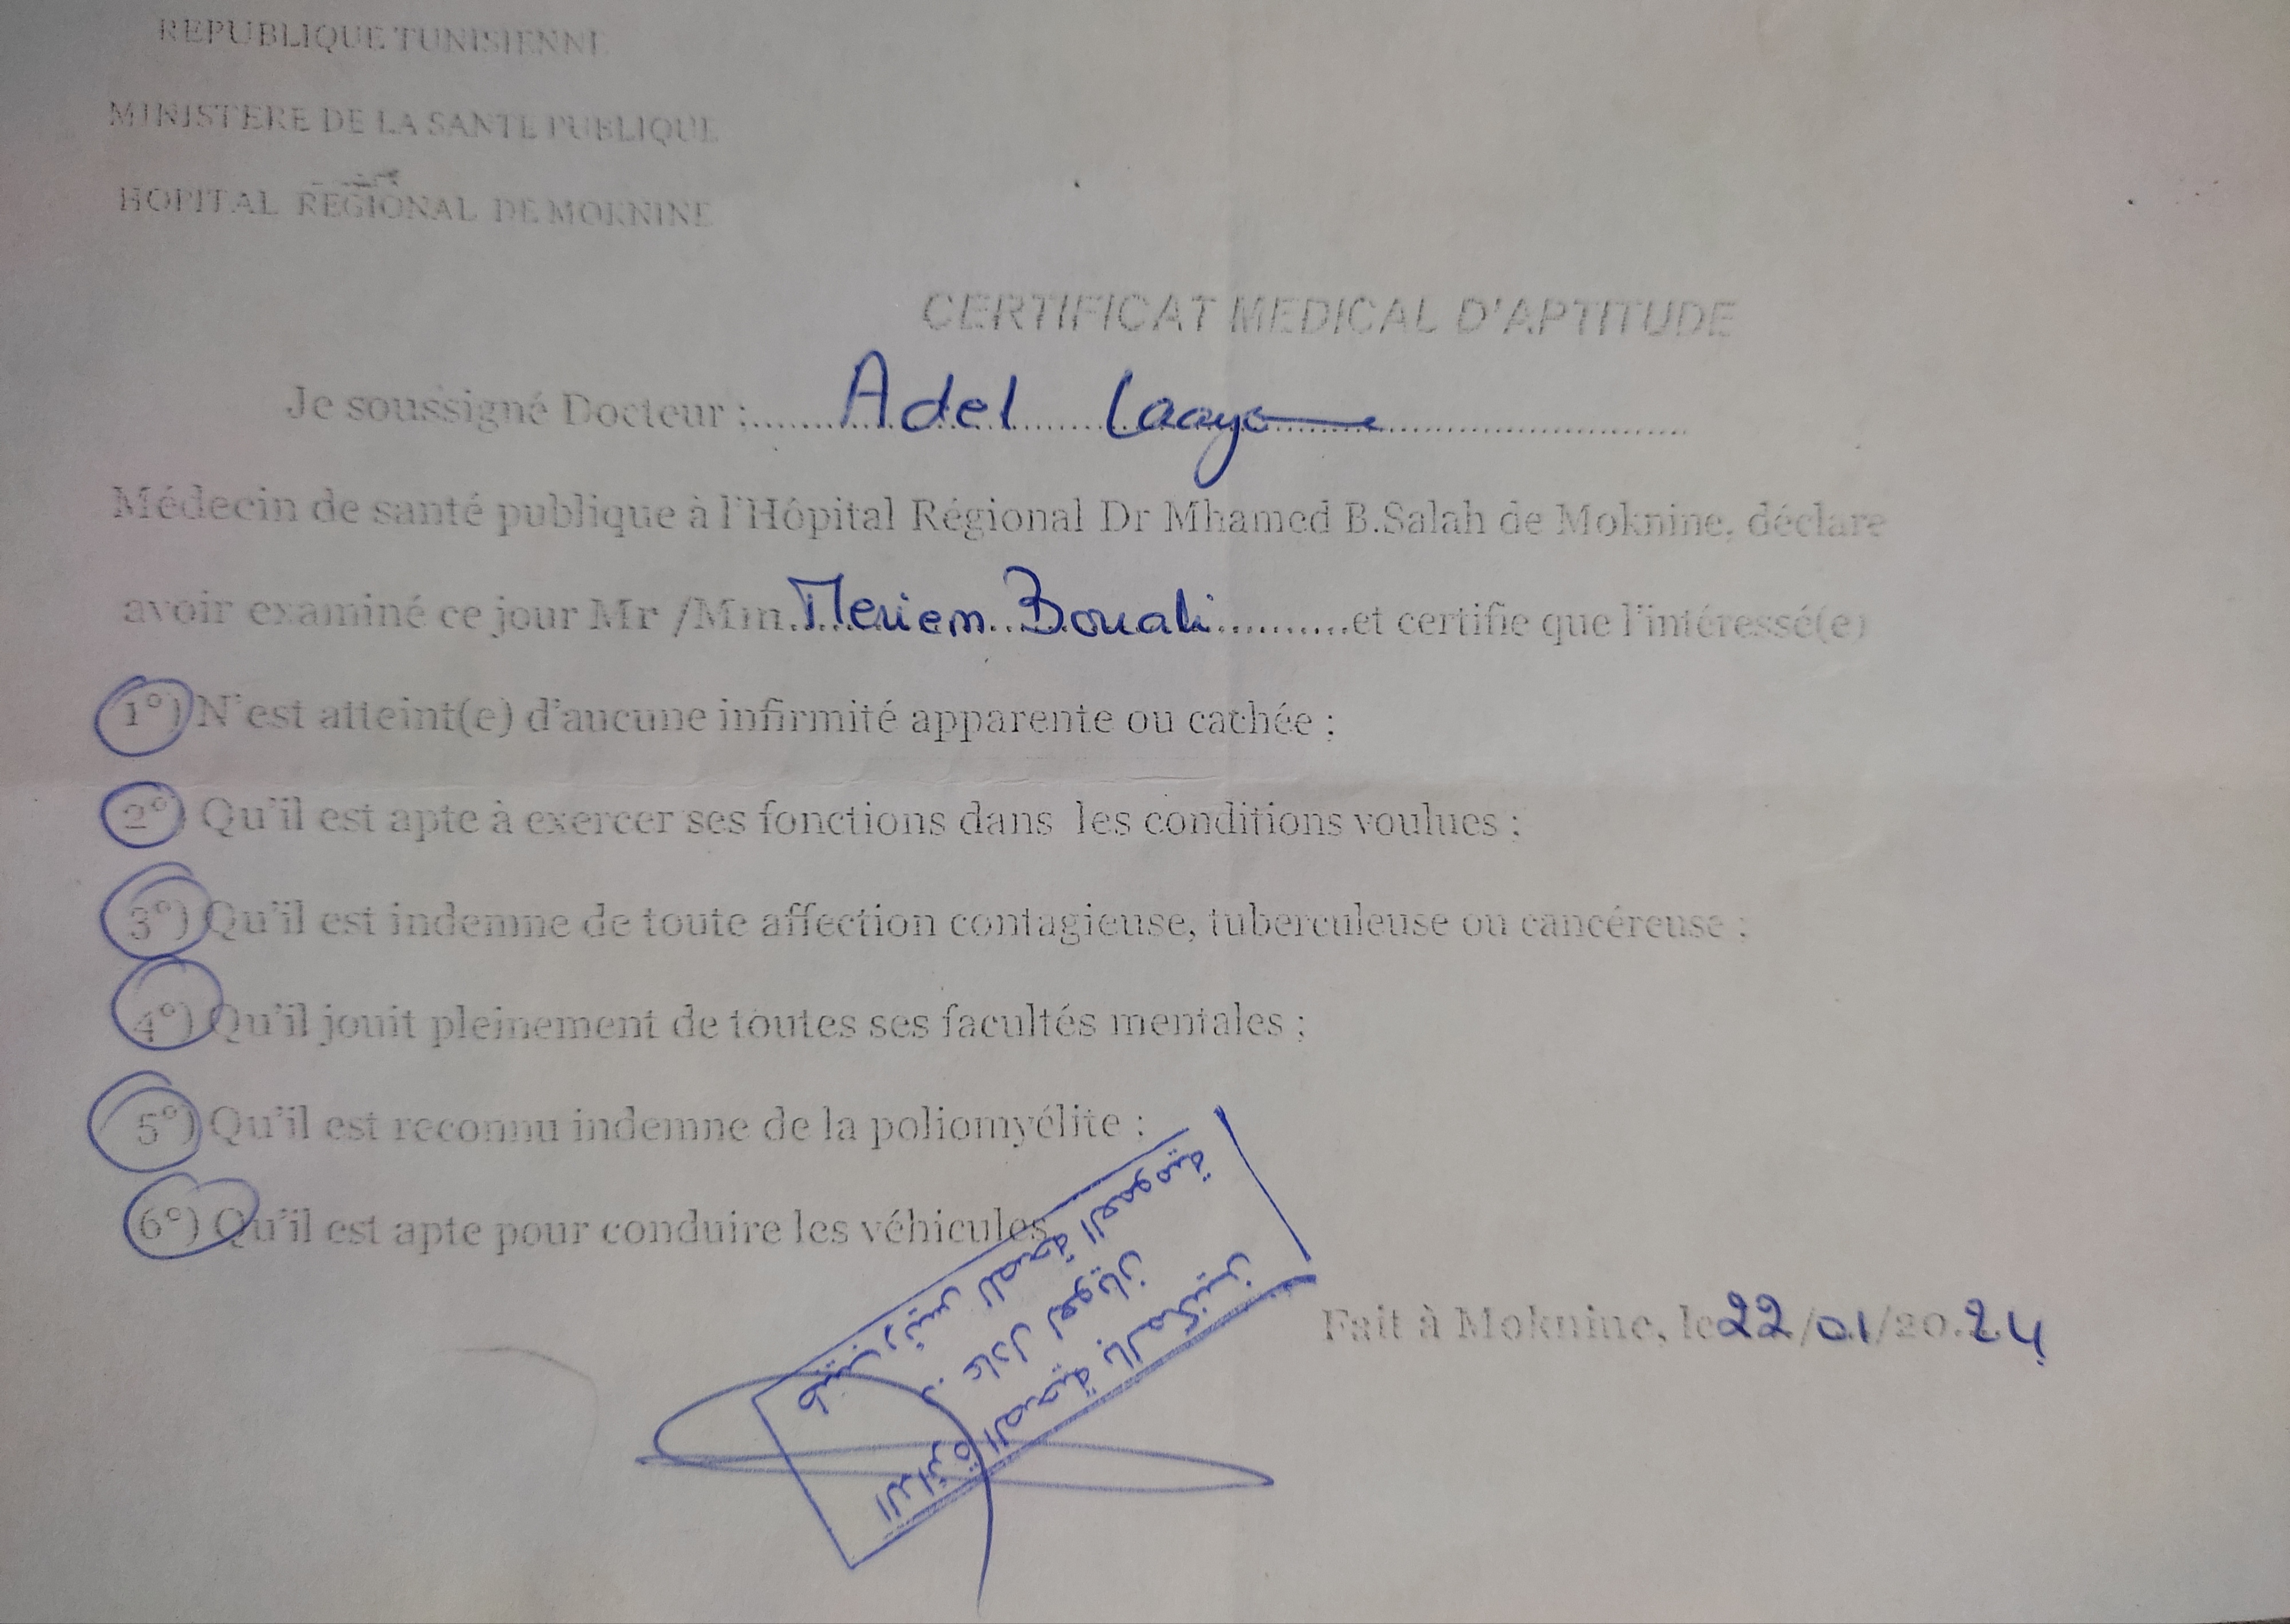 REPUBLIQUE TUNISIENNE
MINISTERE DE LA SANTE PUBLIQUE
HOPITAL REGIONAL DE MOKNINE
CERTIFICAT MEDICAL D'APTITUDE
Je soussigné Docteur :..... Adel
Médecin de santé publique à l'Hôpital Régional Dr Mhamed B.Salah de Moknine, déclare
avoir examiné ce jour Mr /Mm. Meriem Bouali ..........et certifie que l'intéressé(e)
1°) N'est atteint(e) d'aucune infirmité apparente ou cachée ;
2°) Qu'il est apte à exercer ses fonctions dans les conditions voulues ;
3°) Qu'il est indemne de toute affection contagieuse, tuberculeuse ou cancéreuse ;
4°) Qu'il jouit pleinement de toutes ses facultés mentales ;
5°) Qu'il est reconnu indemne de la poliomyélite ;
6°) Qu'il est apte pour conduire les véhicules
طبيب رئيس للصحة العمومية
د. عادل لعويان
الدائرة الصحية بالمكنين
Fait à Moknine, le 22/01/20.24